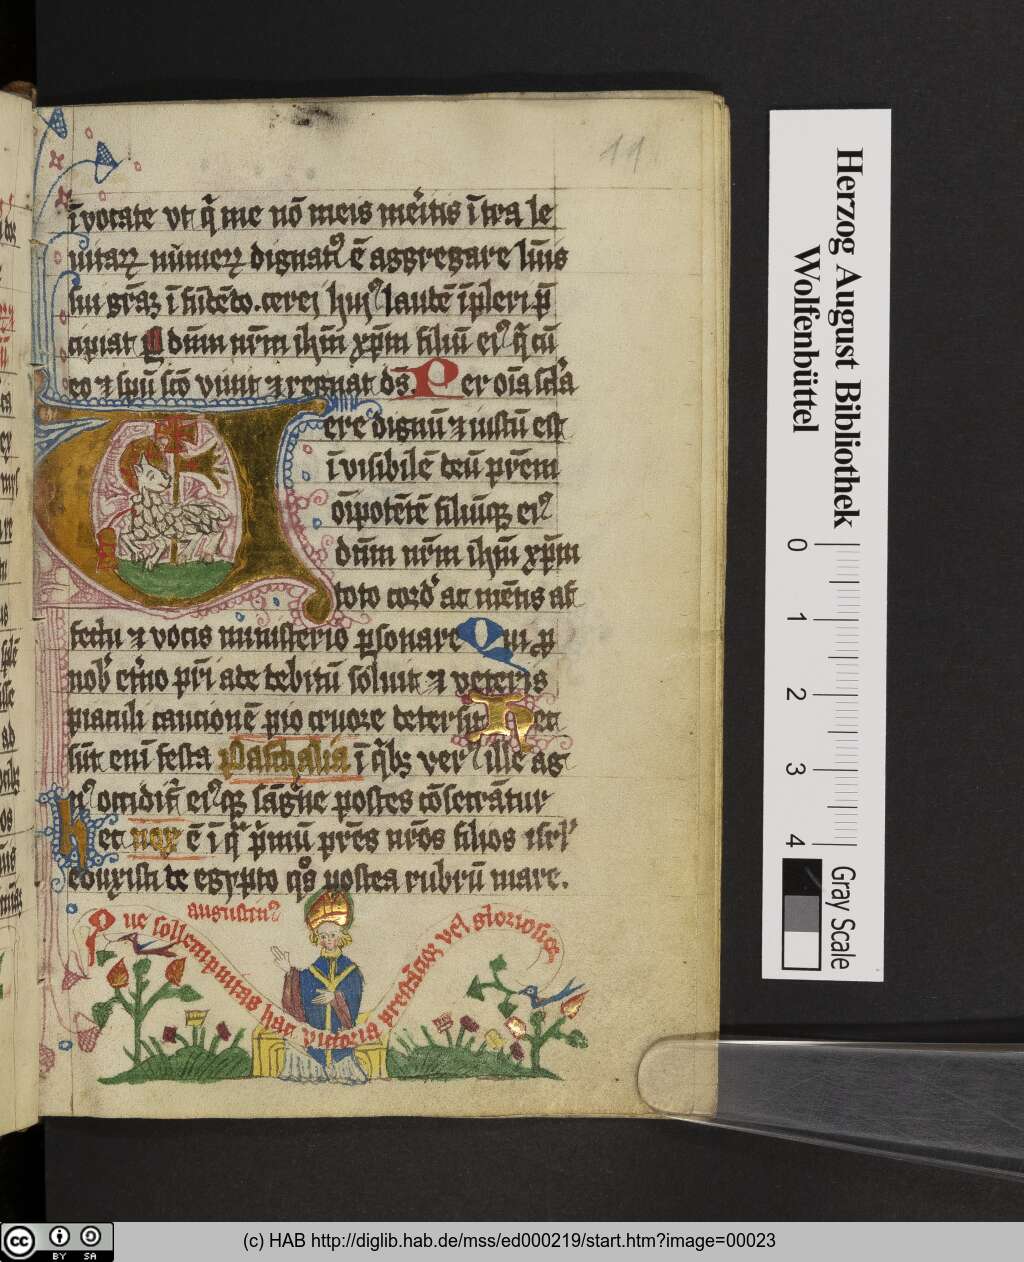 11
īvocate vt q̄ me nō meis meͥtis īt͛a le
uitaꝝ nūmeꝝ dignatꝰ ē aggregare lūis
sui gr̄aꝫ īfūdēdo. cerei huiꝰ laudē īpleri p̄
cipiat P dn̄m nr̄m ih̄m xp̄m filiū eiꝰ q̄ cū
eo ⁊ sp̄u scō viuit ⁊ regnat ds̄. Per oīa scl̓a
Vere dignū ⁊ iustū est
īvisibilē deū pr̄em
oīpotētē filiūqꝫ eiꝰ
dn̄m nr̄m ih̄m xp̄m
toto cord̓ ac mētis af
fectu ⁊ vocis ministerio ꝑsonare Qui ꝓ
nob̓ et̓no pr̄i ade debitū soluit ⁊ veteris
piaculi caucionē pio cruore detersit Hec
sūt enī festa Paschalia ī qͥbꝫ verꝰ ille ag
nꝰ occidit̓ eiꝰqꝫ sāgͥne postes cōsecrātur
hec nox ē ī qͣ pͥmū pr̄es nr̄os filios isrl̓
eduxisti de egypto qͦs postea rubrū mare.
augustinꝰ
Pue sollempnitas hac victoria predācioꝫ vel gloriosioꝫ
Herzog August Bibliothek
Wolfenbüttel
0 1 2 3 4
Gray Scale
cc BY SA
(c) HAB http://diglib.hab.de/mss/ed000219/start.htm?image=00023